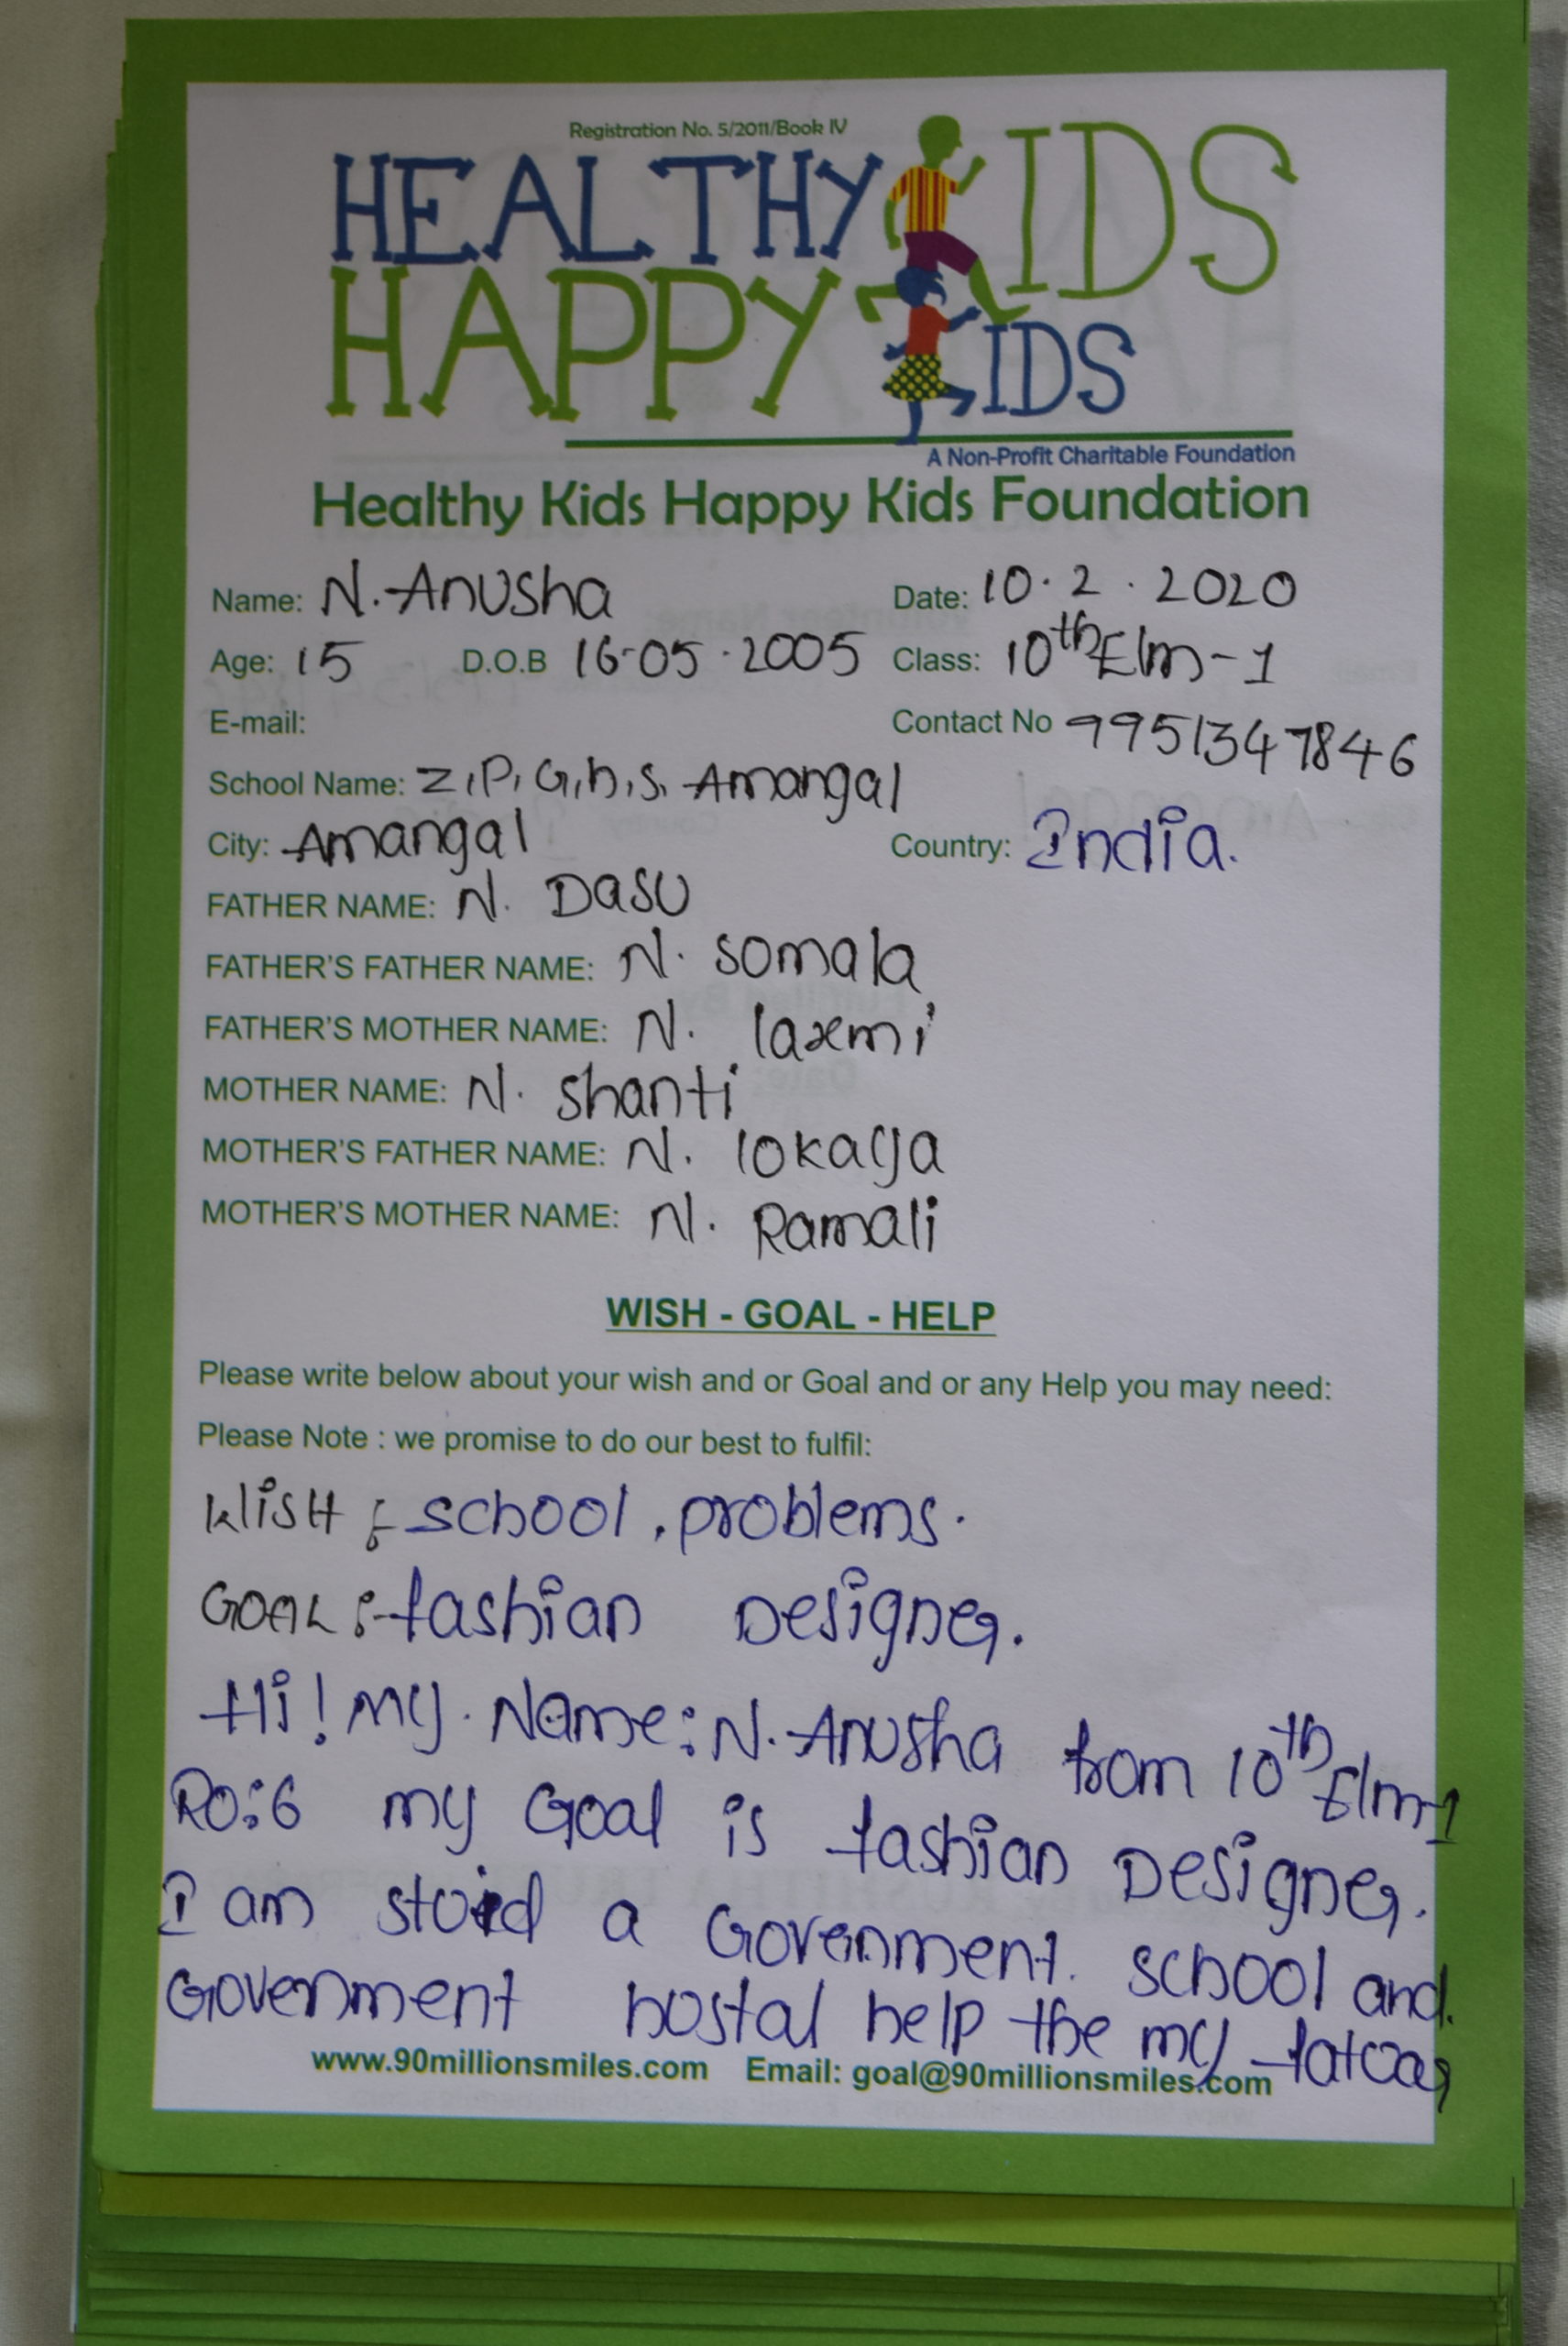 Registration No. 5/2011/Book IV
HEALTHY KIDS
HAPPY KIDS
A Non-Profit Charitable Foundation
Healthy Kids Happy Kids Foundation
Name: N. Anusha Date: 10.2.2020
Age: 15 D.O.B 16-05-2005 Class: 10th E/m-1
E-mail: Contact No 9951347846
School Name: Z.P.G.h.s. Amangal
City: Amangal Country: India.
FATHER NAME: N. Dasu
FATHER'S FATHER NAME: N. somala
FATHER'S MOTHER NAME: N. laxmi
MOTHER NAME: N. shanti
MOTHER'S FATHER NAME: N. lokaya
MOTHER'S MOTHER NAME: N. Ramali
WISH - GOAL - HELP
Please write below about your wish and or Goal and or any Help you may need:
Please Note : we promise to do our best to fulfil:
WiSH :- school, problems.
GOAL :- fashian Designer.
Hi! My. Name: N. Anusha from 10th E/m-1
Ro:6 my Goal is fashian Designer.
I am a Government. school and.
Government hostal help the my
www.90millionsmiles.com Email: goal@90millionsmiles.com